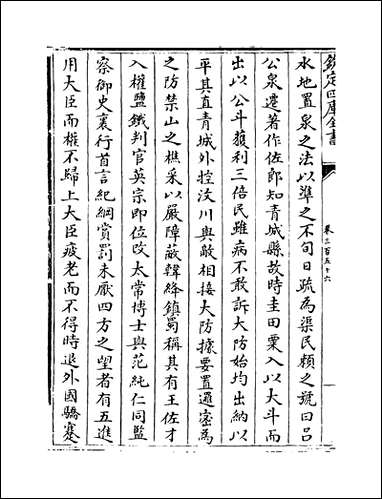 欽定四庫全書
卷三百五十六
水地置泉之法以準之不旬日䟽為渠民頼之號曰吕
公泉遷著作佐郎知青城縣故時圭田粟入以大斗而
出以公斗獲利三倍民雖病不敢訴大防始均出納以
平其直青城外控汶川與敵相接大防據要置邏宻為
之防禁山之樵采以嚴障蔽韓絳鎮蜀稱其有王佐才
入權鹽鐵判官英宗即位改太常博士與范純仁同監
察御史裏行首言紀綱賞罰未厭四方之望者有五進
用大臣而權不歸上大臣疲老而不得時退外國驕蹇